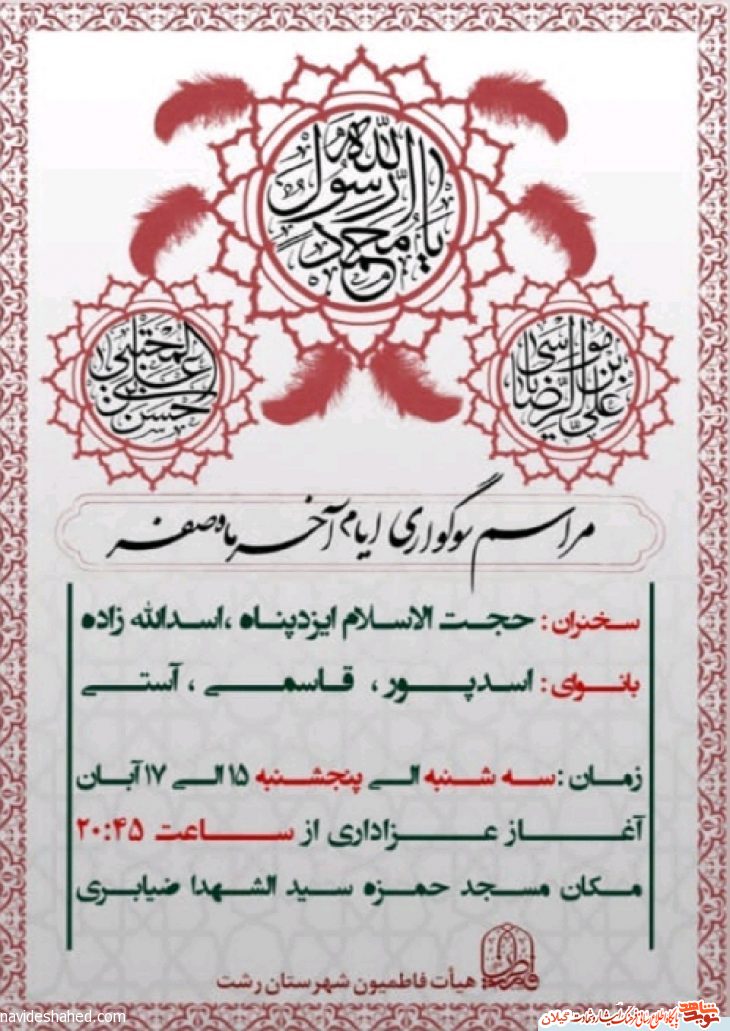 یا رسول الله
محمد
علی بن موسی الرضا
حسن بن علی المجتبی
مراسم سوگواری ایام آخر ماه صفر
سخنران: حجت الاسلام ایزدپناه ،اسدالله زاده
بانوای: اسدپور ، قاسمی ، آستی
زمان :سه شنبه الی پنجشنبه ۱۵ الی ۱۷ آبان
آغاز عزاداری از ساعت ۲۰:۴۵
مکان مسجد حمزه سید الشهدا ضیابری
هیأت فاطمیون شهرستان رشت
navideshahed.com
نوید شاهد